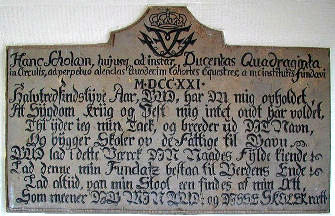 Hanc Scholam, hujusq ad instar, Ducentas Quadraginta
in Circulis, ad perpetuo alendas Cohortes Equestres, a me institutis Fundavi
M·DCC·XXI·
Halvtredsindstyve Aar, GUD, har du mig opholdet,
At Sygdom Kriig og Pest mig intet ondt har voldet,
Thi yder ieg min Tack, og breeder ud DIT Navn,
Og bygger Skoler op de Fattige til Gavn,
GUD lad i dette Værck DIN Naades Fylde kiende
Lad denne min Fundatz bestaa til Verdens Ende
Lad altid paa min Stool een findes af min Æt,
Som meener DIG MIN GUD; og DISSE SKOLER ræt